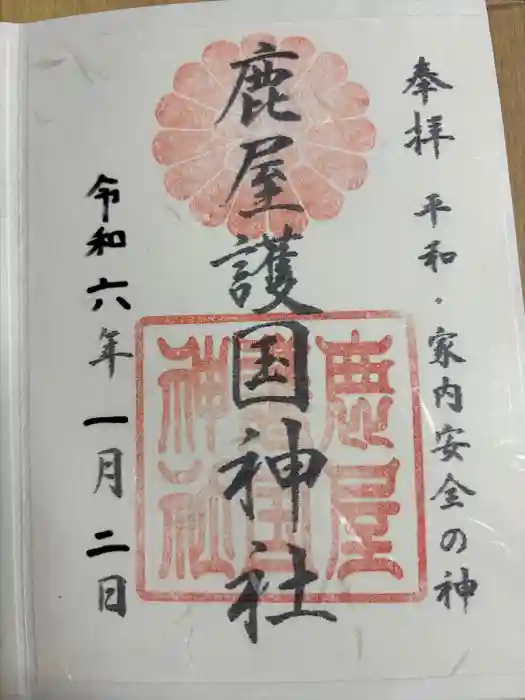 奉拝 平和・家内安全の神
鹿屋護国神社
鹿屋
護国
神社
令和六年一月二日